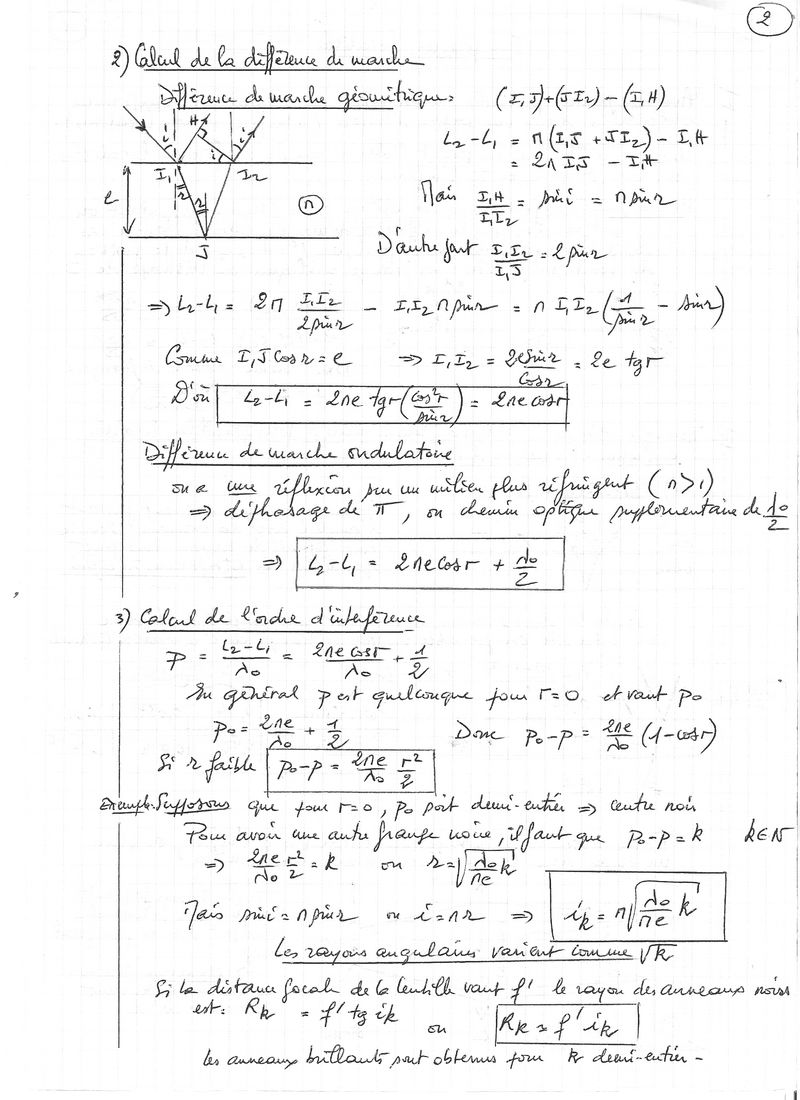 2
2) Calcul de la différence de marche
Différence de marche géométrique: (I₁J)+(JI₂)−(I₁H)
H i i i
I₁ I₂
L₂−L₁ = n(I₁J + JI₂) − I₁H
= 2n I₁J − I₁H
e r r n
Mais I₁H/I₁I₂ = sin i = n sin r
J
D'autre part I₁I₂/I₁J = 2 sin r
⇒ L₂−L₁ = 2n I₁I₂/2 sin r − I₁I₂ n sin r = n I₁I₂ (1/sin r − sin r)
Comme I₁J cos r = e ⇒ I₁I₂ = 2e sin r/cos r = 2e tg r
D'où L₂−L₁ = 2ne tg r (cos²r/sin r) = 2ne cos r
Différence de marche ondulatoire
on a une réflexion sur un milieu plus réfringent (n>1)
⇒ déphasage de π, ou chemin optique supplémentaire de λ₀/2
⇒ L₂−L₁ = 2ne cos r + λ₀/2
3) Calcul de l'ordre d'interférence
p = L₂−L₁/λ₀ = 2ne cos r/λ₀ + 1/2
En général p est quelconque pour r=0 et vaut p₀
p₀ = 2ne/λ₀ + 1/2 Donc p₀−p = 2ne/λ₀ (1−cos r)
Si r faible p₀−p = 2ne/λ₀ r²/2
Exemple Supposons que pour r=0, p₀ soit demi-entier ⇒ centre noir
Pour avoir une autre frange noire, il faut que p₀−p = k k∈N
⇒ 2ne/λ₀ r²/2 = k ou r = √(λ₀/ne k)
Mais sin i = n sin r ou i = n r ⇒ i_k = n √(λ₀/ne k)
Les rayons angulaires varient comme √k
Si la distance focale de la lentille vaut f' le rayon des anneaux noirs
est: R_k = f' tg i_k ou R_k ≃ f' i_k
Les anneaux brillants sont obtenus pour k demi-entier −